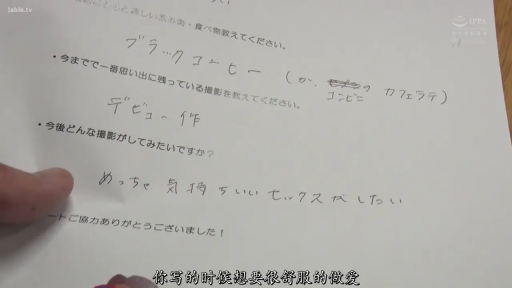 Jable.tv
IPPA
食べ物教えてください。
ブラックコーヒー (か、コンビニの カフェラテ)
・今までで一番思い出に残っている撮影を教えてください。
デビュー作
・今後どんな撮影がしてみたいですか?
めっちゃ 気持ちいいセックスがしたい
ートご協力ありがとうございました!
你写的时候想要很舒服的做爱